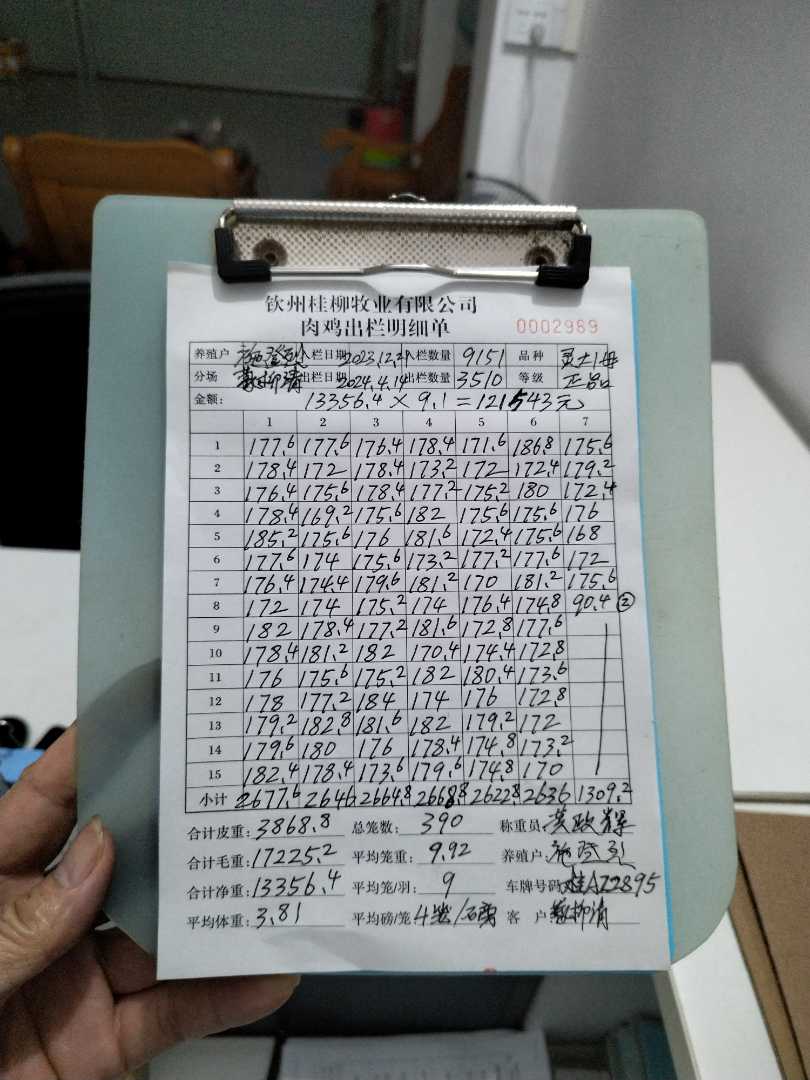 钦州桂柳牧业有限公司
肉鸡出栏明细单 0002989
养殖户 施登烈 入栏日期 2023.12.2 入栏数量 9151 品种 灵土1号
分场 柳清 出栏日期 2024.4.14 出栏数量 3510 等级 正品
金额: 13356.4 × 9.1 = 121543元
1 2 3 4 5 6 7
1 177.6 177.6 176.4 178.4 171.6 186.8 175.6
2 178.4 172 178.4 173.2 172 172.4 179.2
3 176.4 175.6 178.4 177.2 175.2 180 172.4
4 178.4 169.2 175.6 182 175.6 175.6 176
5 185.2 175.6 176 181.6 172.4 175.6 168
6 177.6 174 175.6 173.2 177.2 177.6 172
7 176.4 174.4 179.6 181.2 170 181.2 175.6
8 172 174 175.2 174 176.4 174.8 90.4 ②
9 182 178.4 177.2 181.6 172.8 177.6
10 178.4 181.2 182 170.4 174.4 172.8
11 176 175.6 175.2 182 180.4 173.6
12 178 177.2 184 174 176 172.8
13 179.2 182.8 181.6 182 179.2 172
14 179.6 180 176 178.4 174.8 173.2
15 182.4 178.4 173.6 179.6 174.8 170
小计 2677.6 2646 2664.8 2668.8 2622.8 2636 1309.2
合计皮重: 3868.8 总笼数: 390 称重员: 黄政辉
合计毛重: 17225.2 平均笼重: 9.92 养殖户: 施登烈
合计净重: 13356.4 平均笼/羽: 9 车牌号码 桂A22895
平均体重: 3.81 平均磅/笼 4笼/磅 客户 柳清